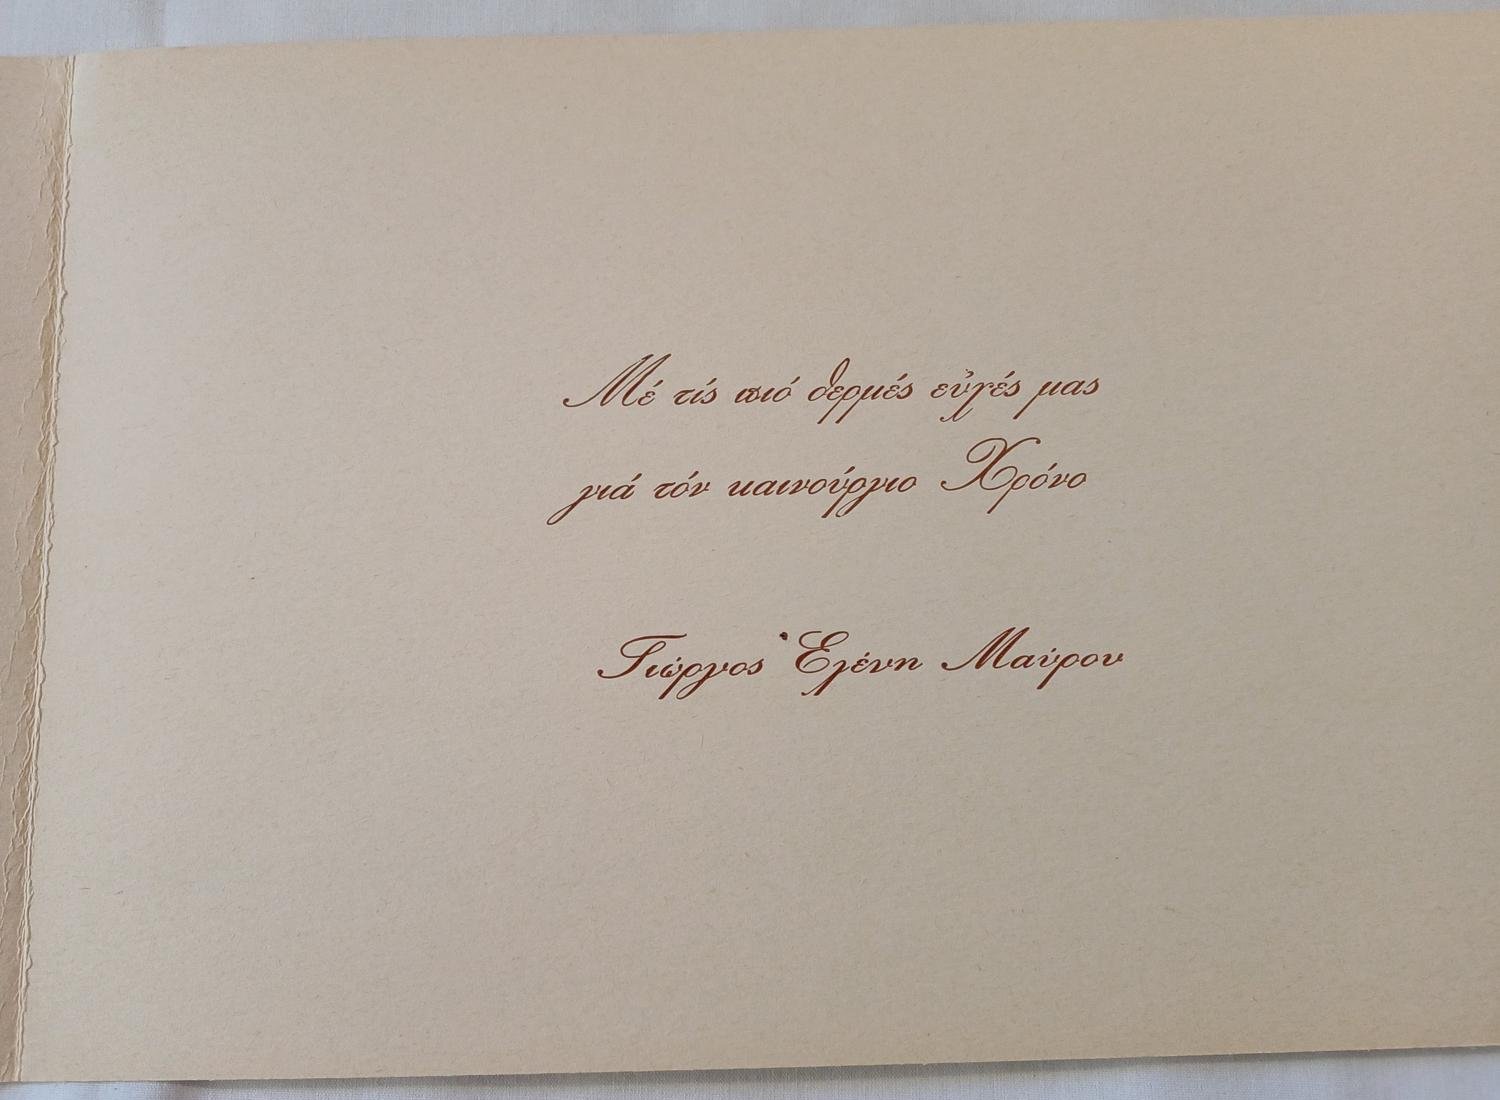 Μέ τίς πιό θερμές εὐχές μας
γιά τόν καινούργιο Χρόνο
Γιώργος Ἑλένη Μαύρου